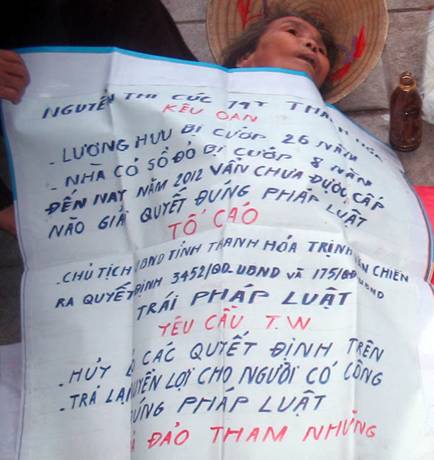 NGUYỄN THỊ CÚC 79T THANH HÓA
KÊU OAN
- LƯƠNG HƯU BỊ CƯỚP 26 NĂM
- NHÀ CÓ SỔ ĐỎ BỊ CƯỚP 8 NĂM
ĐẾN NAY NĂM 2012 VẪN CHƯA ĐƯỢC CẤP
NÀO GIẢI QUYẾT ĐÚNG PHÁP LUẬT
TỐ CÁO
- CHỦ TỊCH UBND TỈNH THANH HÓA TRỊNH CHIẾN
RA QUYẾT ĐỊNH 3452/QĐ_UBND VÀ 175/QĐ UBND
TRÁI PHÁP LUẬT
YÊU CẦU T.W.
- HỦY CÁC QUYẾT ĐỊNH TRÊN
- TRẢ LẠI LỢI CHO NGƯỜI CÓ CÔNG
PHÁP LUẬT
ĐẢO THAM NHŨNG